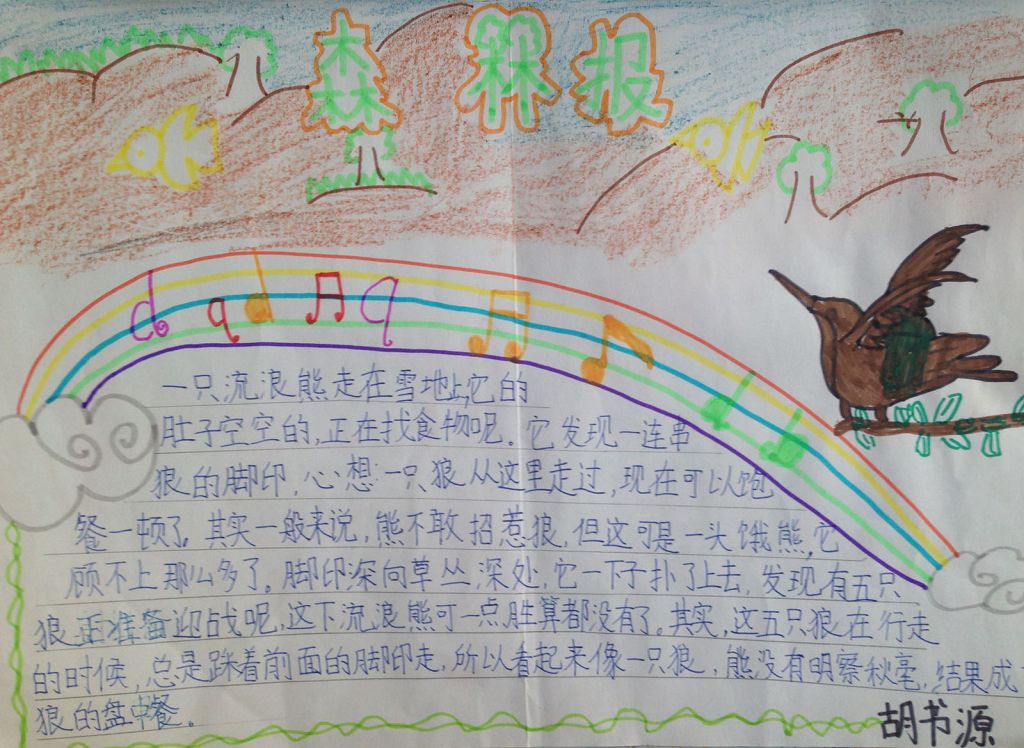 森林报
一只流浪熊走在雪地上,它的
肚子空空的,正在找食物呢。它发现一连串
狼的脚印,心想:一只狼从这里走过,现在可以饱
餐一顿了。其实一般来说,熊不敢招惹狼,但这可是一头饿熊,它
顾不上那么多了。脚印深向草丛深处,它一下子扑了上去,发现有五只
狼正准备迎战呢,这下流浪熊可一点胜算都没有了。其实,这五只狼在行走
的时候,总是踩着前面的脚印走,所以看起来像一只狼,熊没有明察秋毫,结果成了
狼的盘中餐。
胡书源